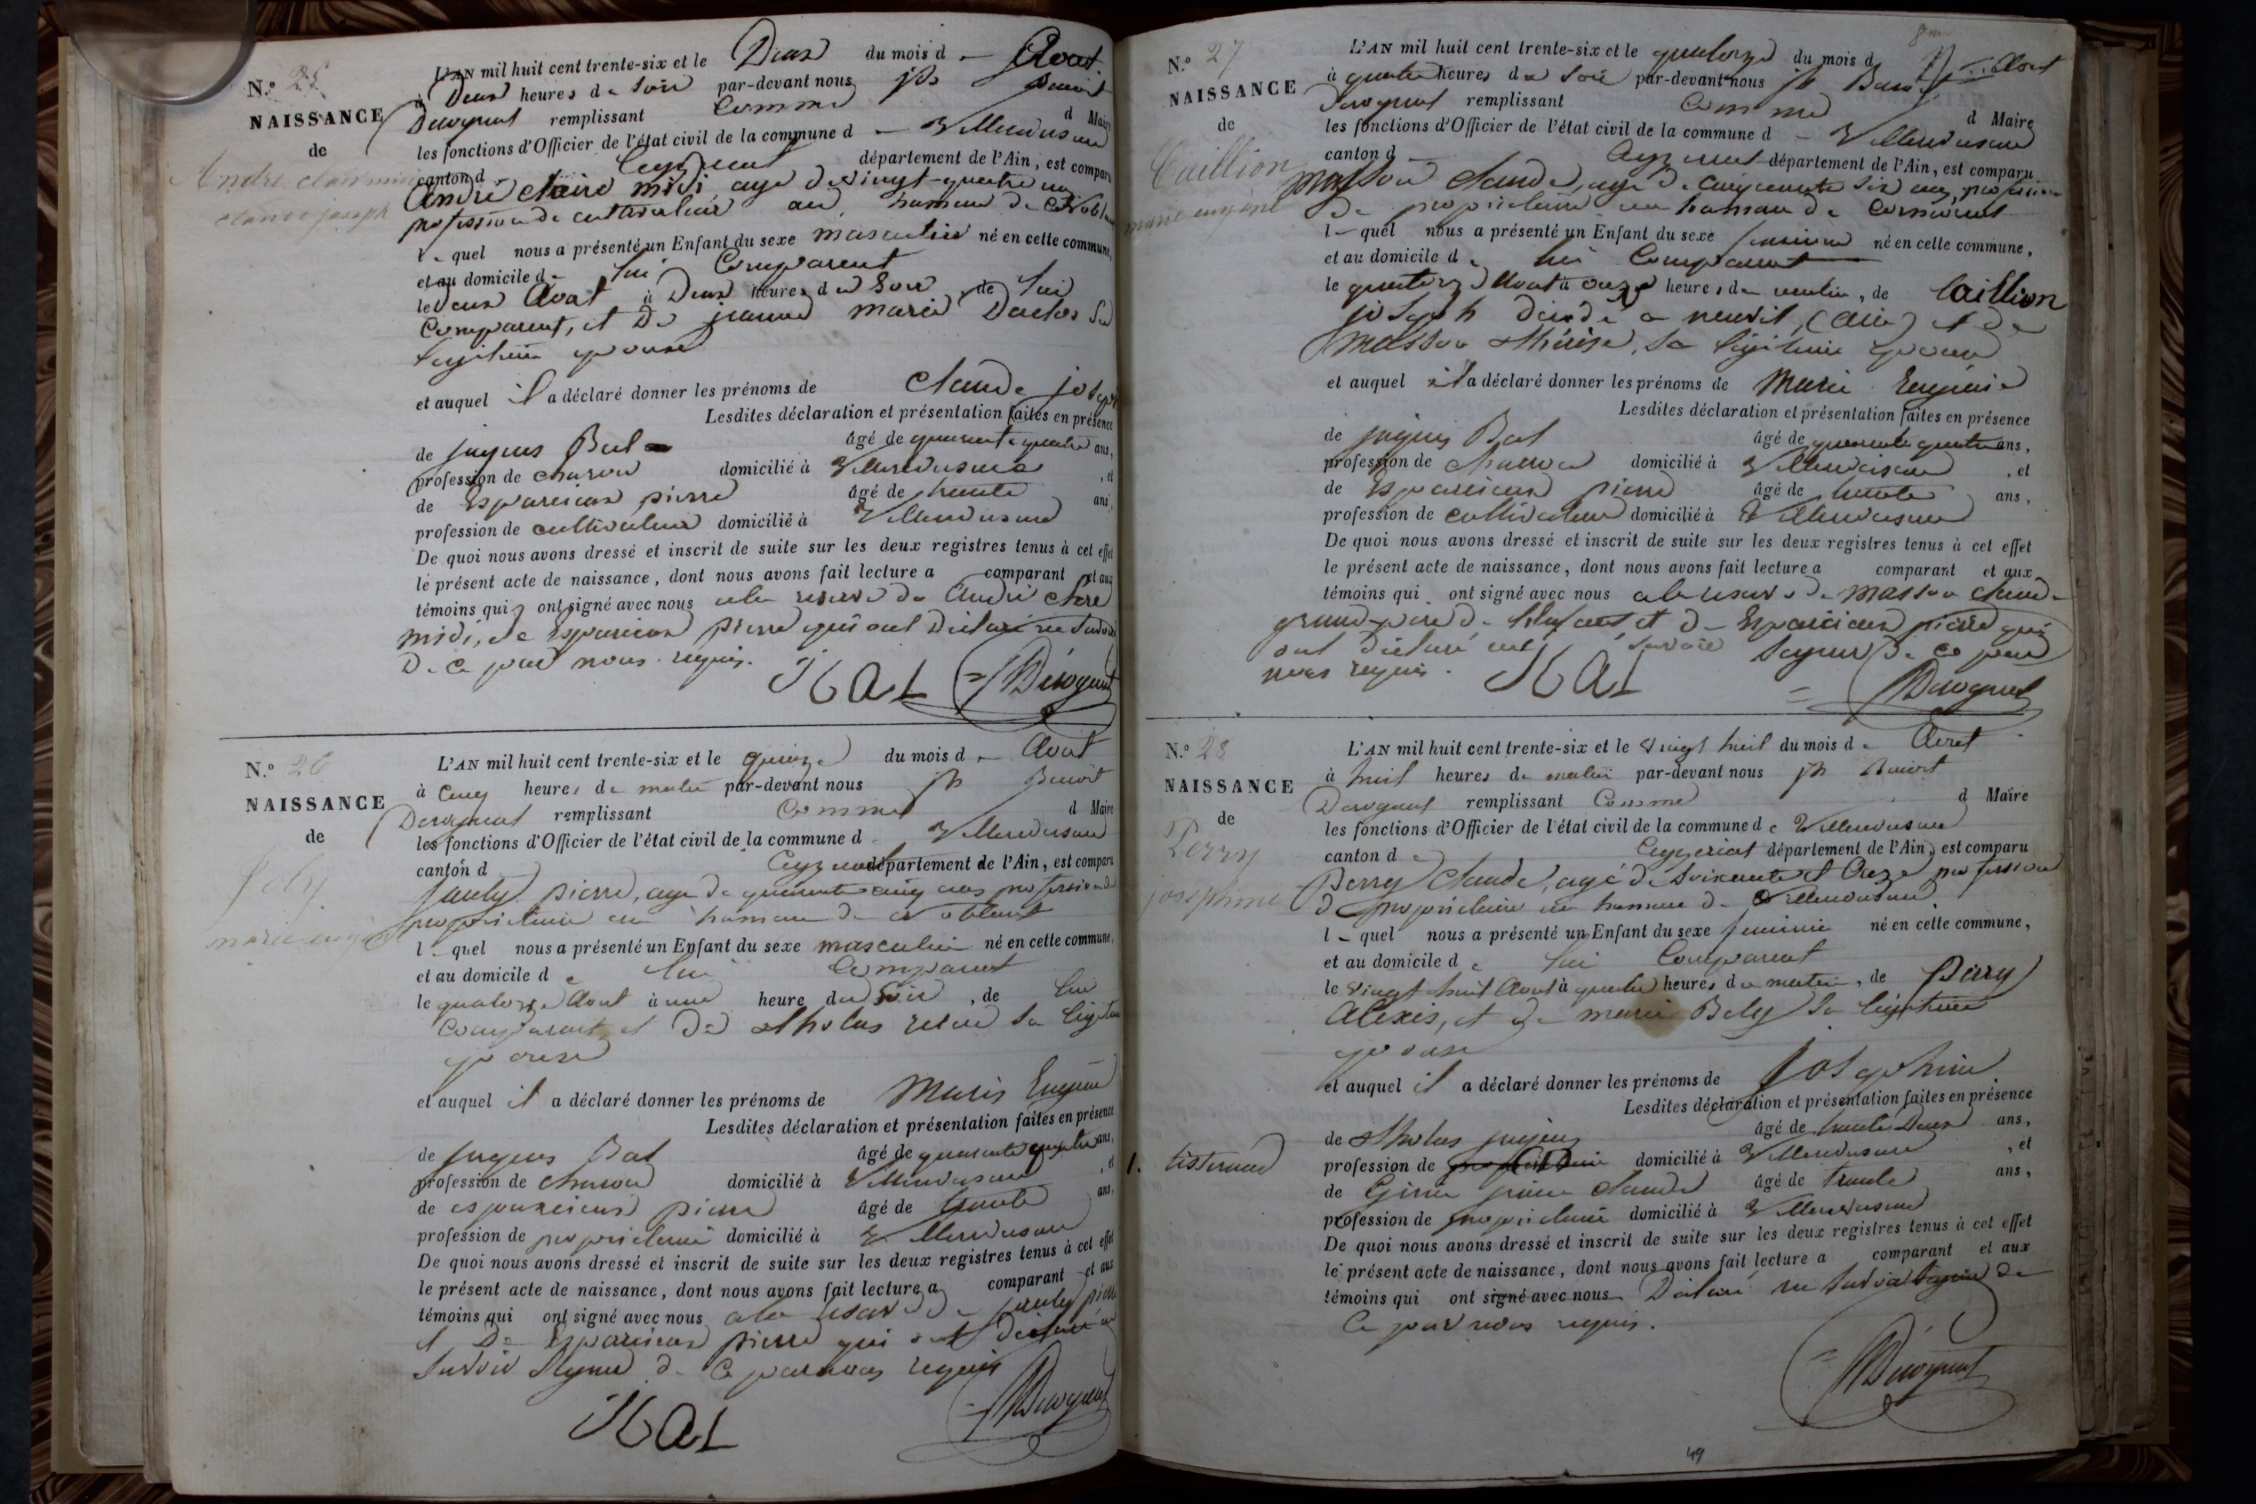 N.º 25
NAISSANCE
de
André claire midi
claude joseph
L'AN mil huit cent trente-six et le Deux du mois d Aout
à Deux heures de soir par-devant nous Jh Benoit
Derognat remplissant Comme d Maire
les fonctions d'Officier de l'état civil de la commune d Villereversure
canton d Ceyzeriat département de l'Ain, est comparu
André claire midi agé de vingt-quatre ans
profession de cultivateur au hameau de Noblens
l e quel nous a présenté un Enfant du sexe masculin né en cette commune,
et au domicile de lui Comparant
le deux Aout à Deux heures du soir de lui
Comparant, et De jeanne marie Duclos Sa
légitime epouse
et auquel il a déclaré donner les prénoms de Claude joseph
Lesdites déclaration et présentation faites en présence
de jaques Bal âgé de quarante quatre ans,
profession de charon domicilié à Villereversure, et
de Esparcieux pierre âgé de trente ans,
profession de cultivateur domicilié à Villereversure
De quoi nous avons dressé et inscrit de suite sur les deux registres tenus à cet effet
le présent acte de naissance, dont nous avons fait lecture a comparant et aux
témoins qui ont signé avec nous a la reserve de André clere
midi, et de Esparcieux pierre qui ont Déclaré ne savoir
De ce par nous requis.
Bal Derognat
N.º 26
NAISSANCE
de
Joly
marie eugene
L'AN mil huit cent trente-six et le quinze du mois d Aout
à Cinq heures de matin par-devant nous Jh Benoit
Derognat remplissant Comme d Maire
les fonctions d'Officier de l'état civil de la commune d Villereversure
canton d Ceyzeriat département de l'Ain, est comparu
pierre, agé de quarante cinq ans profession de
propriétaire au hameau de Noblens
l e quel nous a présenté un Enfant du sexe masculin né en cette commune,
et au domicile d e lui Comparant
le quatorze Aout à une heure du Soir, de lui
Comparant, et De sa légitime
epouse
et auquel il a déclaré donner les prénoms de Marie Eugene
Lesdites déclaration et présentation faites en présence
de jaques Bal âgé de quarante quatre ans,
profession de charon domicilié à Villereversure, et
de esparcieux pierre âgé de trente ans,
profession de propriétaire domicilié à Villereversure
De quoi nous avons dressé et inscrit de suite sur les deux registres tenus à cet effet
le présent acte de naissance, dont nous avons fait lecture a comparant et aux
témoins qui ont signé avec nous a la reserve de pierre
et De Esparcieux pierre qui ont déclaré ne
savoir signer de ce par nous requis
Bal Derognat
N.º 27
NAISSANCE
de
Caillion
marie eugenie
L'AN mil huit cent trente-six et le quatorze du mois d Aout
à quatre heures du soir par-devant nous Jh Benoit
Derognat remplissant Comme d Maire
les fonctions d'Officier de l'état civil de la commune d Villereversure
canton d Ceyzeriat département de l'Ain, est comparu
Masson Claude, agé de cinquante six ans, profession
de propriétaire au hameau de
l e quel nous a présenté un Enfant du sexe feminin né en cette commune,
et au domicile d e lui Comparant
le quatorze Aout à onze heures du matin, de Caillion
joseph à neuvil, (Ain) et de
Masson thérèse, sa légitime epouse
et auquel il a déclaré donner les prénoms de Marie Eugenie
Lesdites déclaration et présentation faites en présence
de jaques Bal âgé de quarante quatre ans,
profession de charron domicilié à Villereversure, et
de Esparcieux pierre âgé de trente ans,
profession de cultivateur domicilié à Villereversure
De quoi nous avons dressé et inscrit de suite sur les deux registres tenus à cet effet
le présent acte de naissance, dont nous avons fait lecture a comparant et aux
témoins qui ont signé avec nous a la reserve de Masson claude
grand-père de l'enfant et de Esparcieux pierre qui
ont déclaré ne savoir signer de ce par
nous requis.
Bal Derognat
N.º 28
NAISSANCE
de
Perry
josephine
L'AN mil huit cent trente-six et le vingt huit du mois d e Aout
à huit heures de matin par-devant nous Jh Benoit
Derognat remplissant Comme d Maire
les fonctions d'Officier de l'état civil de la commune d e Villereversure
canton d e Ceyzeriat département de l'Ain, est comparu
Perry Claude, agé de soixante et Onze profession
de propriétaire au hameau de Villereversure
l e quel nous a présenté un Enfant du sexe feminin né en cette commune,
et au domicile d e lui Comparant
le vingt huit Aout à quatre heures du matin, de Perry
Alexis, et de marie Bely sa légitime
epouse
et auquel il a déclaré donner les prénoms de Josephine
Lesdites déclaration et présentation faites en présence
de âgé de trente Deux ans,
1. tisserand
profession de propriétaire domicilié à Villereversure, et
de claude âgé de trente ans,
profession de propriétaire domicilié à Villereversure
De quoi nous avons dressé et inscrit de suite sur les deux registres tenus à cet effet
le présent acte de naissance, dont nous avons fait lecture a comparant et aux
témoins qui ont signé avec nous Déclaré ne savoir signer de
Ce par nous requis.
Derognat
49